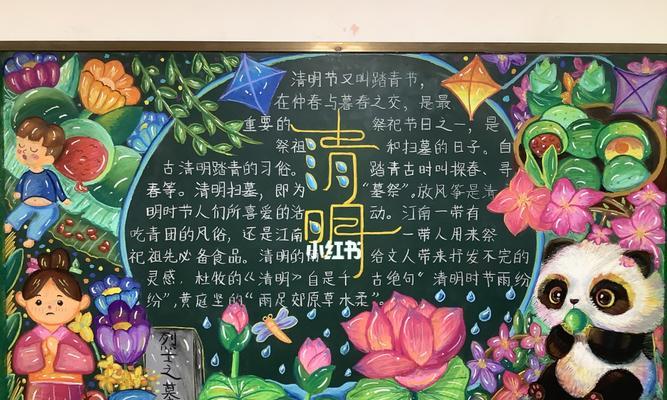 清明节又叫踏青节，
在仲春与暮春之交，是最
重要的 祭祀节日之一，是
祭祖 和扫墓的日子。自
古清明踏青的习俗。 踏青古时叫探春、寻
春等。清明扫墓，即为 “墓祭”。放风筝是清
明时节人们所喜爱的活 动。江南一带有
吃青团的风俗，还是江南 一带人用来祭
祀祖先必备食品。清明的 给文人带来抒发不完的
灵感，杜牧的《清明》自是千 古绝句“清明时节雨纷
纷”，黄庭坚的“雨足郊原草木柔”。
清明
小红书
烈士之墓